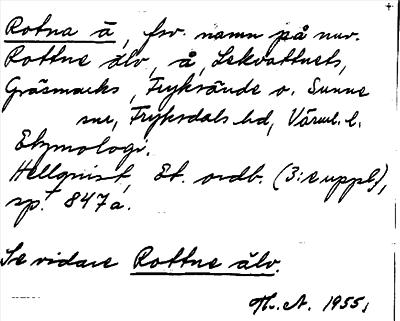 Rotna å, fsv. namn på nuv.
Rottne älv, å, Lekvattnets,
Gräsmarks, Fryksände o. Sunne
snr, Fryksdals hd, Värml. l.
Etymologi.
Hellquist, Et. ordb. (3:e uppl.),
sp. 847a.
Se vidare Rottne älv.
Th. A. 1955.